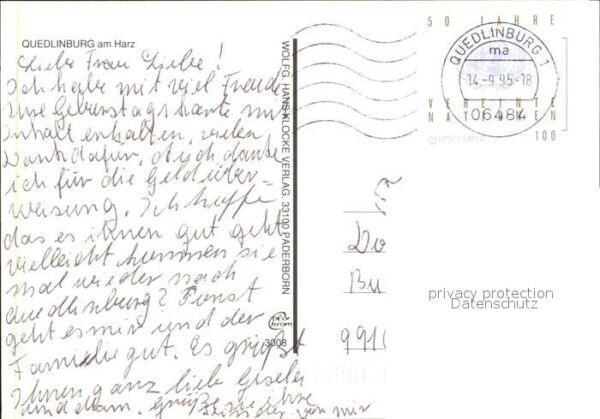 QUEDLINBURG am Harz
Liebe Frau Liebe!
Ich habe mit viel Freude
Ihre Geburtstagskarte mit
Inhalt erhalten, vielen
Dank dafür, auch danke
ich für die Geldüber-
weisung. Ich hoffe
das es ihnen gut geht
vielleicht kommen sie
mal wieder nach
Quedlinburg? Sonst
geht es mir und der
Familie gut. Es grüßt
Ihnen ganz liebe Gisela
grüße sie ihre
von mir
WOLFG. HANS KLOCKE VERLAG, 33100 PADERBORN
3008
50 JAHRE
VEREINTE
NATIONEN
DEUTSCHLAND
100
QUEDLINBURG 1
ma
14.-9.95-18
06484
Do
Bu
991
privacy protection
Datenschutz